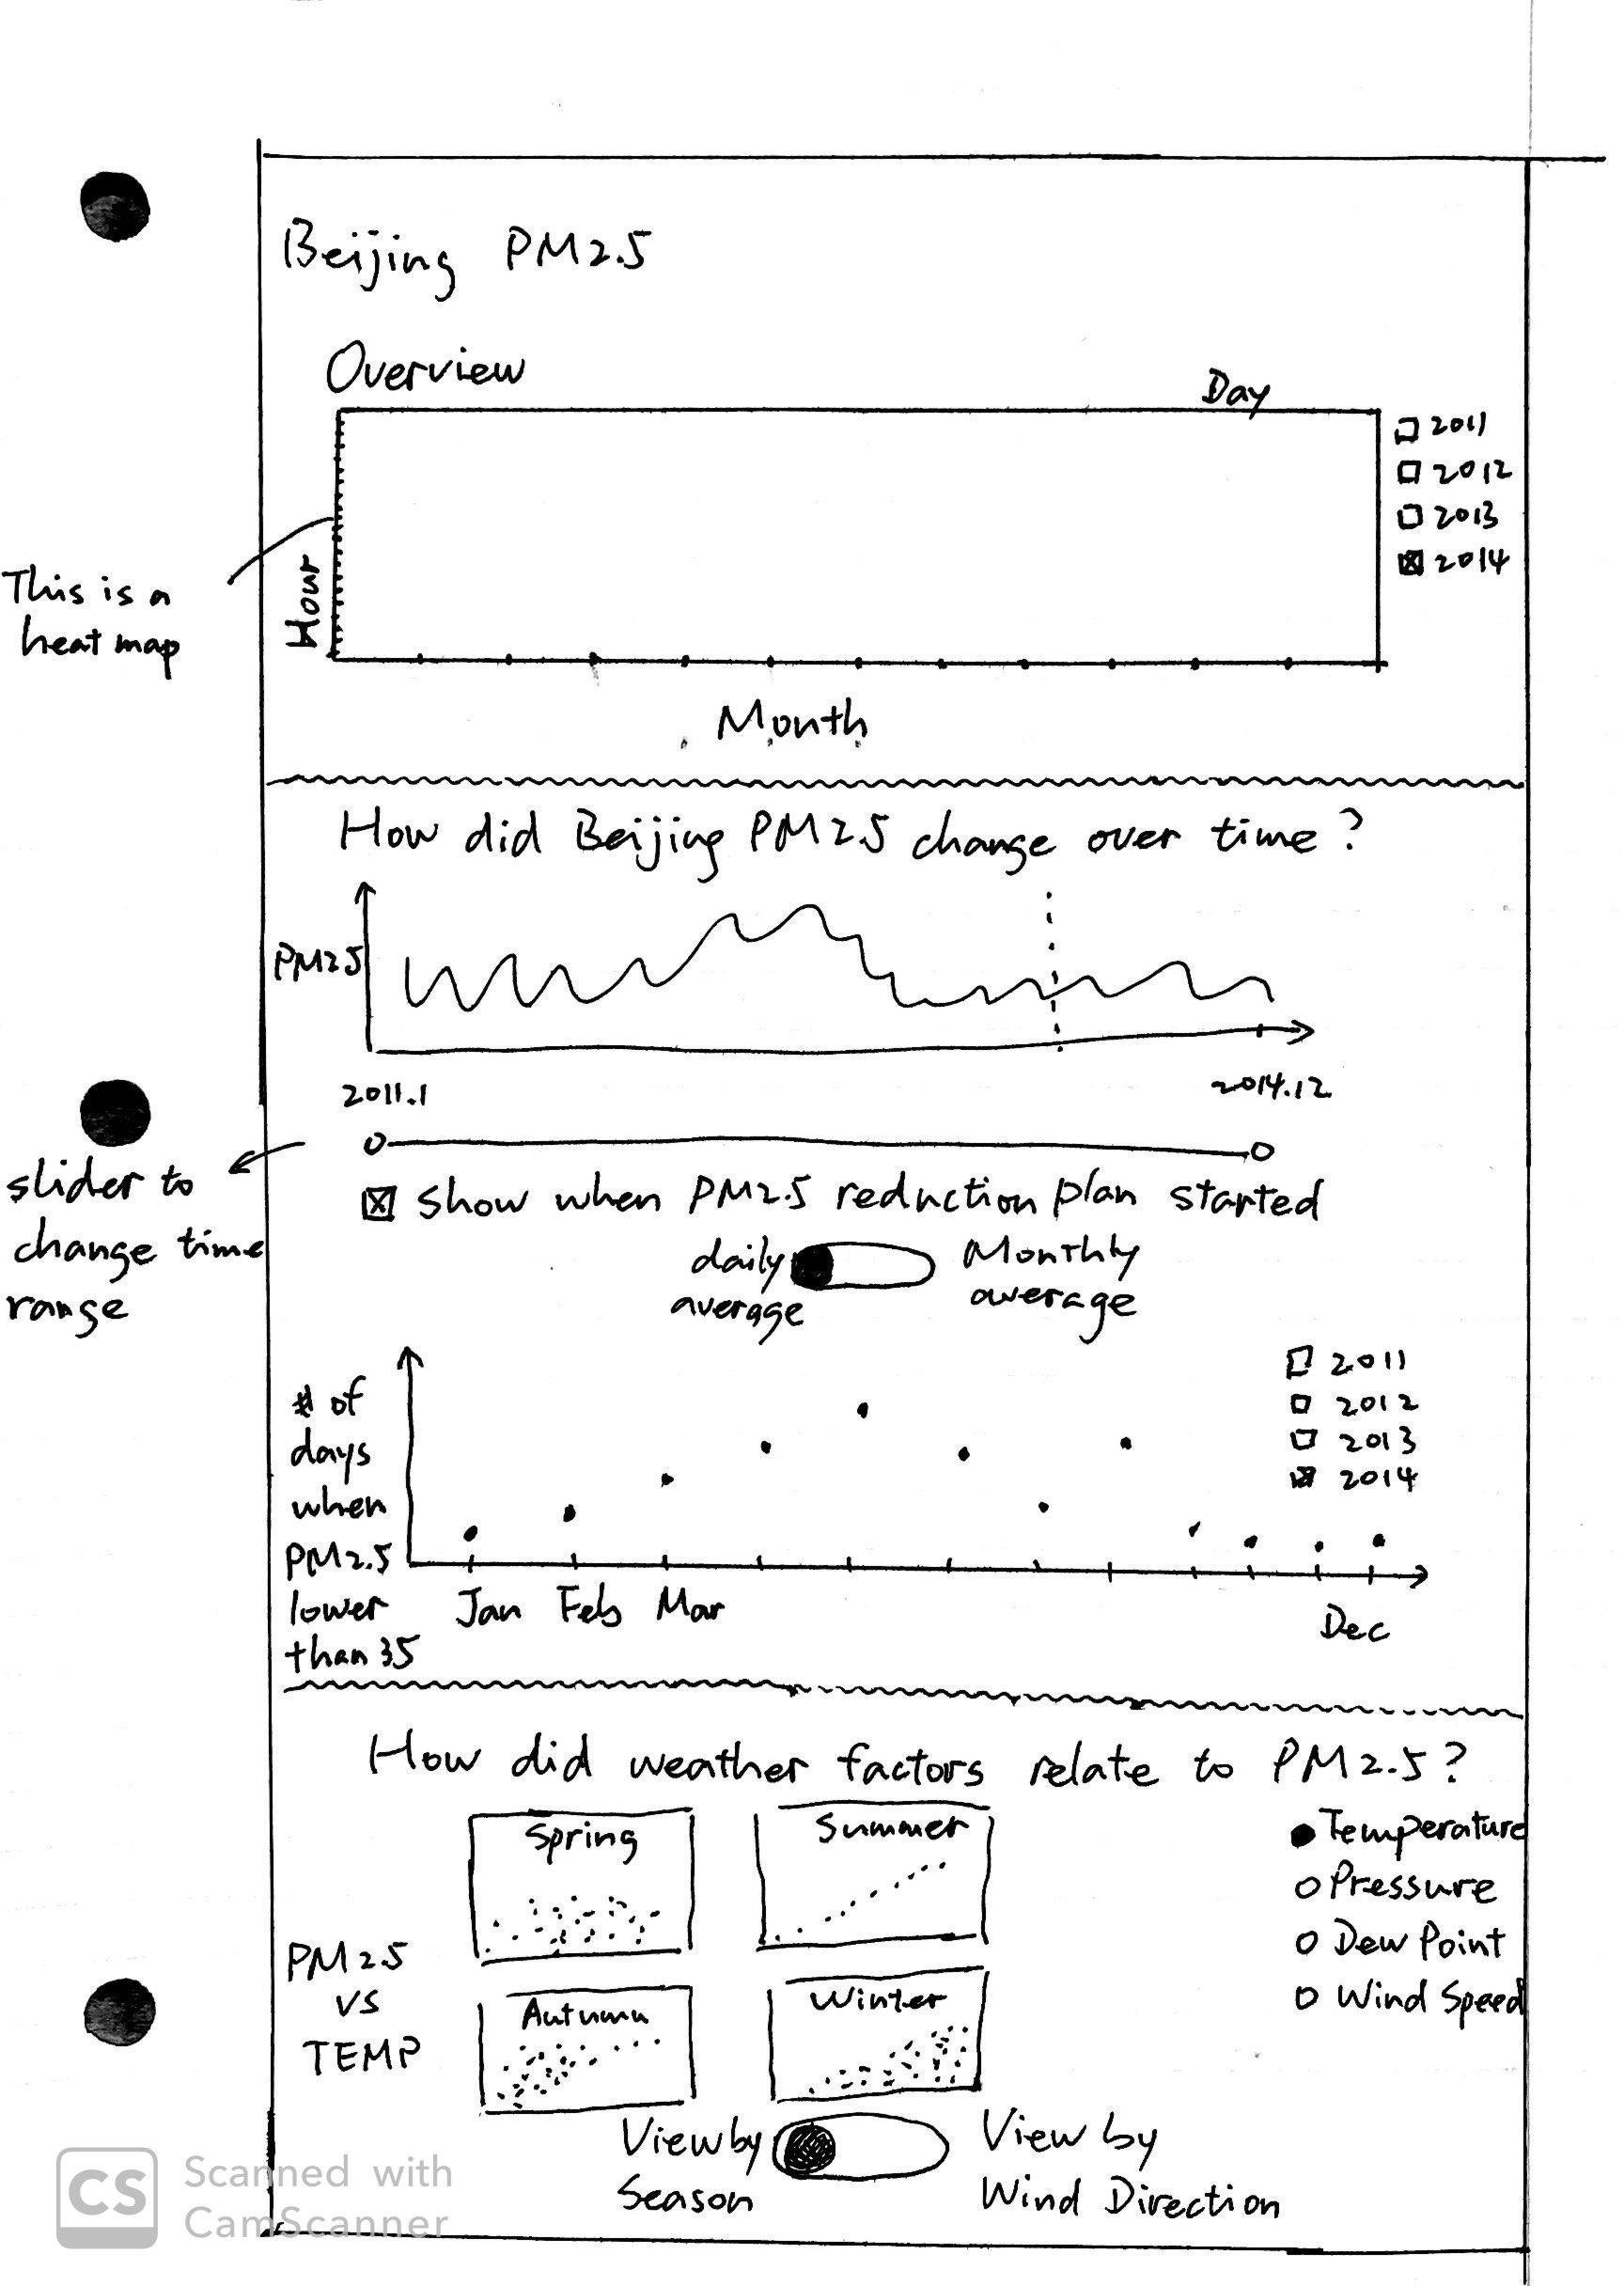 Beijing PM2.5
Overview
Day
2011
2012
2013
2014
Hour
This is a
heat map
Month
How did Beijing PM2.5 change over time?
PM2.5
2011.1
2014.12
slider to
change time
range
show when PM2.5 reduction plan started
daily
average
Monthly
average
# of
days
when
PM2.5
lower
than 35
2011
2012
2013
2014
Jan Feb Mar
Dec
How did weather factors relate to PM2.5?
Spring
Summer
Autumn
Winter
PM2.5
VS
TEMP
Temperature
Pressure
Dew Point
Wind Speed
View by
Season
View by
Wind Direction
CS
Scanned with
CamScanner